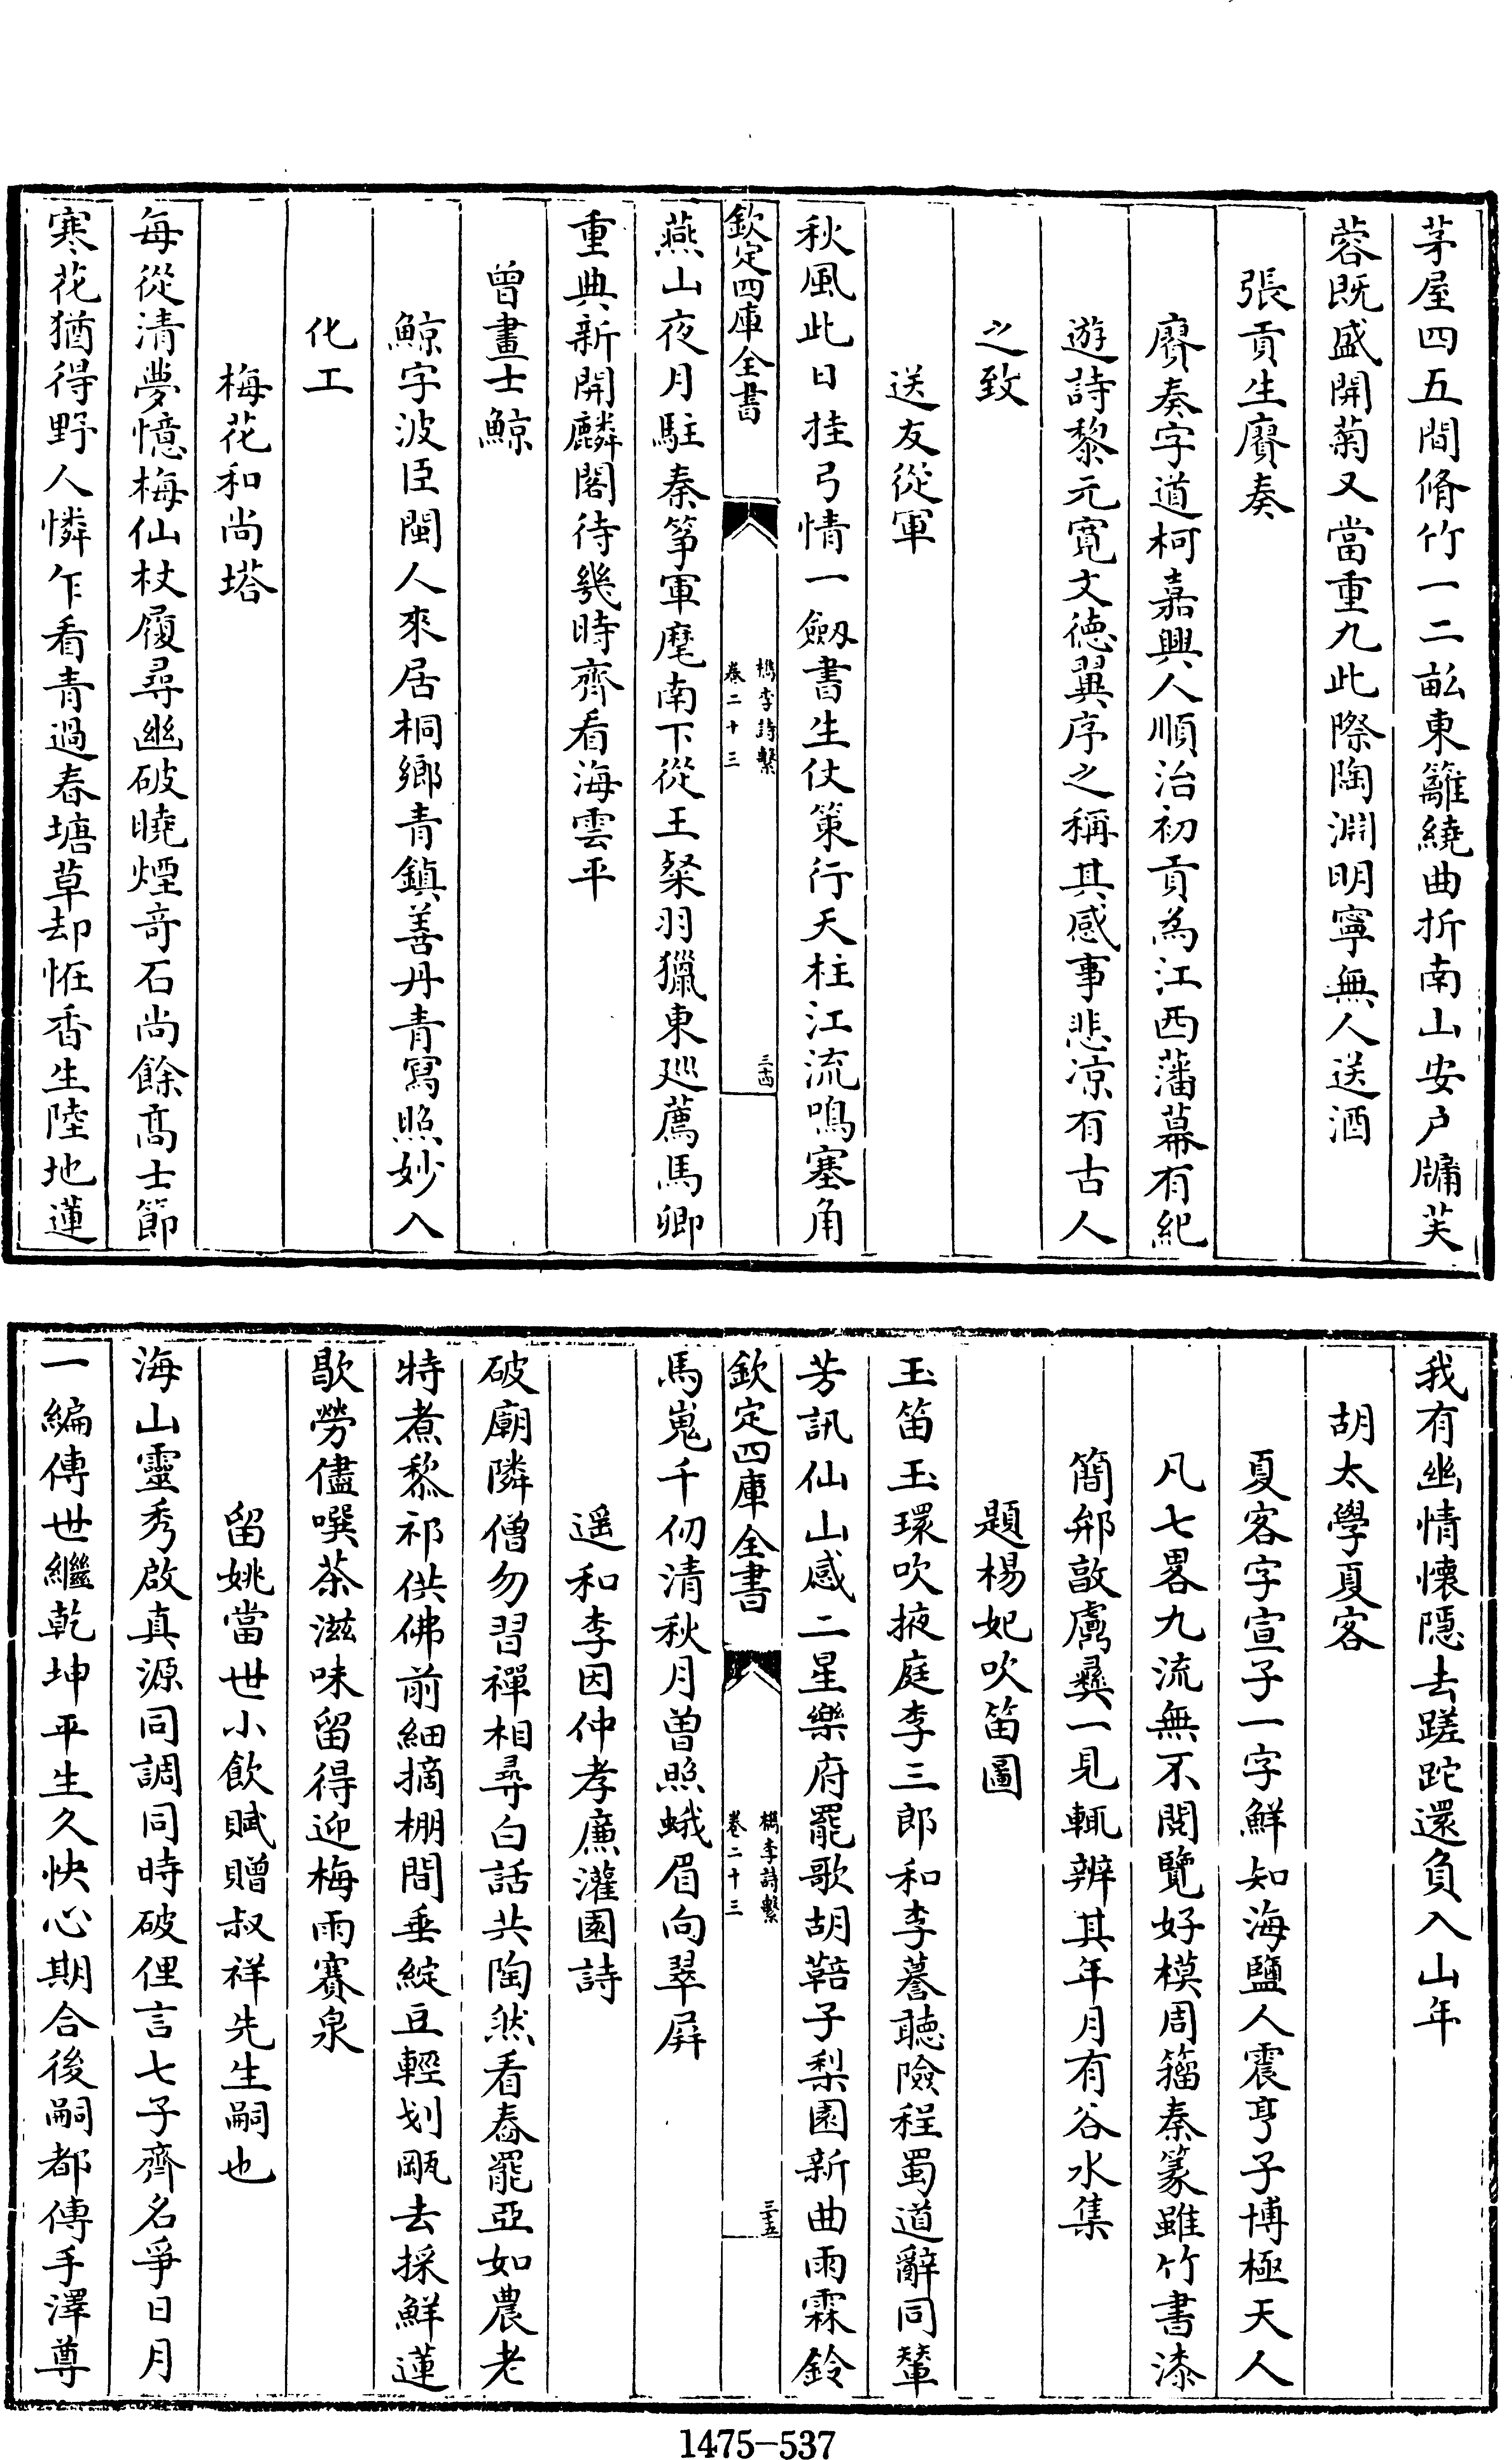 茅屋四五間脩竹一二畝東籬繞曲折南山安戶牖芙
蓉既盛開菊又當重九此際陶淵明寧無人送酒
張貢生賡奏
賡奏字道柯嘉興人順治初貢為江西藩幕有紀
遊詩黎元寛文德翼序之稱其感事悲凉有古人
之致
送友從軍
秋風此日挂弓情一劔書生仗策行天柱江流鳴塞角
欽定四庫全書
檇李詩繫
卷二十三
三十四
燕山夜月駐秦筝軍麾南下從王粲羽獵東廵薦馬卿
重典新開麟閣待幾時齊看海雲平
曾畫士鯨
鯨字波臣閩人來居桐鄉青鎮善丹青寫照妙入
化工
梅花和尚塔
每從清夢憶梅仙杖履尋幽破曉煙竒石尚餘髙士節
寒花猶得野人憐乍看青過春塘草却恠香生陸地蓮
我有幽情懐隱去蹉跎還負入山年
胡太學夏客
夏客字宣子一字鮮知海鹽人震亨子博極天人
凡七畧九流無不閱覽好模周籀秦篆雖竹書漆
簡邠敦鬳彞一見輒辨其年月有谷水集
題楊妃吹笛圖
玉笛玉環吹掖庭李三郎和李謩聽險程蜀道辭同輦
芳訊仙山感二星樂府罷歌胡鞳子梨園新曲雨霖鈴
欽定四庫全書
檇李詩繫
卷二十三
三十五
馬嵬千仞清秋月曾照蛾眉向翠屏
遥和李因仲孝亷灌園詩
破廟隣僧勿習禪相尋白話共陶然看春罷亞如農老
特煮黎祁供佛前細摘棚間垂綻豆輕划甌去採鮮蓮
歇勞儘噀茶滋味留得迎梅雨賽泉
留姚當世小飲賦贈叔祥先生嗣也
海山靈秀啟真源同調同時破俚言七子齊名爭日月
一編傳世繼乾坤平生久快心期合後嗣都傳手澤尊
1475-537